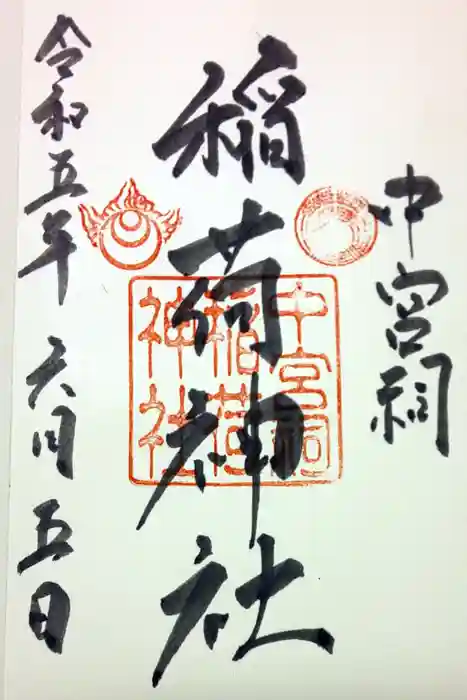 中宮祠
稲荷神社
令和五年 六月五日
中宮祠
稲荷
神社